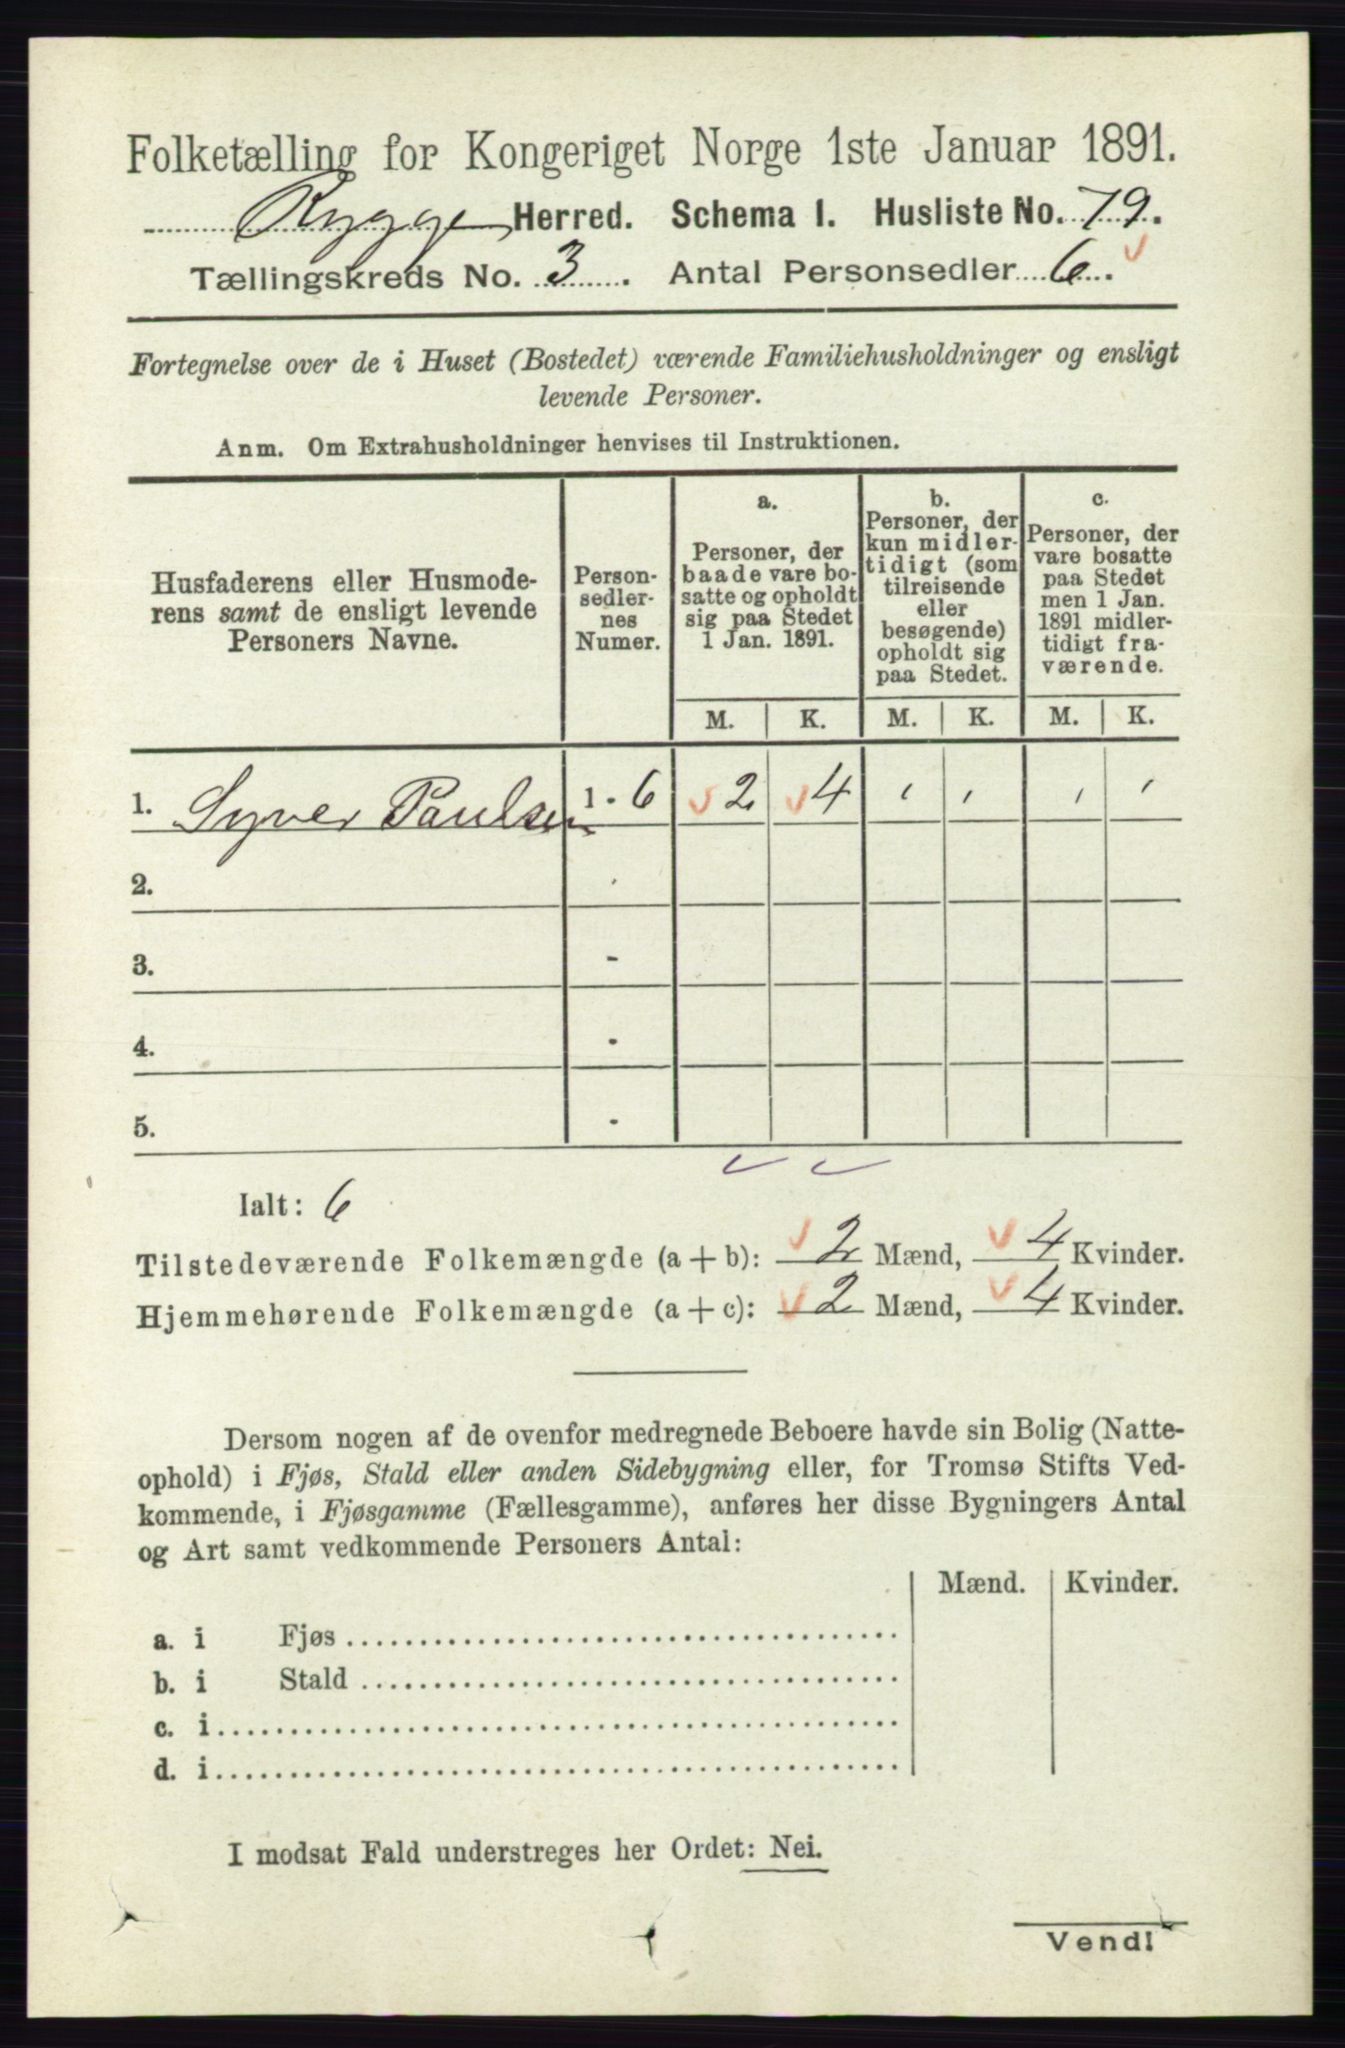 Folketælling for Kongeriget Norge 1ste Januar 1891.
Rygge Herred. Schema 1. Husliste No. 79.
Tællingskreds No. 3. Antal Personsedler 6.
Fortegnelse over de i Huset (Bostedet) værende Familiehusholdninger og ensligt
levende Personer.
Anm. Om Extrahusholdninger henvises til Instruktionen.
Husfaderens eller Husmode-
rens samt de ensligt levende
Personers Navne.
Person-
sedler-
nes
Numer.
a.
Personer, der
baade vare bo-
satte og opholdt
sig paa Stedet
1 Jan. 1891.
b.
Personer, der
kun midler-
tidigt (som
tilreisende
eller
besøgende)
opholdt sig
paa Stedet.
c.
Personer, der
vare bosatte
paa Stedet
men 1 Jan.
1891 midler-
tidigt fra-
værende.
M. K. M. K. M. K.
1. Syver Paulsen 1 - 6 2 4
2.
3. -
4. -
5. -
Ialt: 6
Tilstedeværende Folkemængde (a + b): 2 Mænd, 4 Kvinder.
Hjemmehørende Folkemængde (a + c): 2 Mænd, 4 Kvinder.
Dersom nogen af de ovenfor medregnede Beboere havde sin Bolig (Natte-
ophold) i Fjøs, Stald eller anden Sidebygning eller, for Tromsø Stifts Ved-
kommende, i Fjøsgamme (Fællesgamme), anføres her disse Bygningers Antal
og Art samt vedkommende Personers Antal:
Mænd. Kvinder.
a. i Fjøs
b. i Stald
c. i
d. i
I modsat Fald understreges her Ordet: Nei.
Vend!